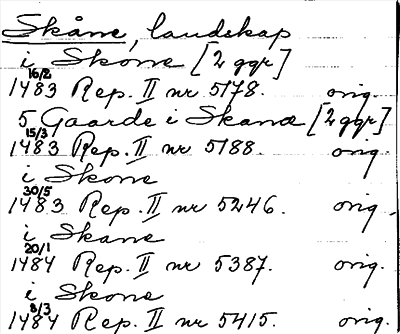 Skåne, landskap
i Skone [2 ggr]
1483 16/2 Rep. II nr 5178. orig.
5 Gaarde i Skanæ [2 ggr]
1483 15/3 Rep. II nr 5188. orig.
i Skone
1483 30/5 Rep. II nr 5246. orig.
i Skane
1484 20/1 Rep. II nr 5387. orig.
i Skone
1484 8/3 Rep. II nr 5415. orig.